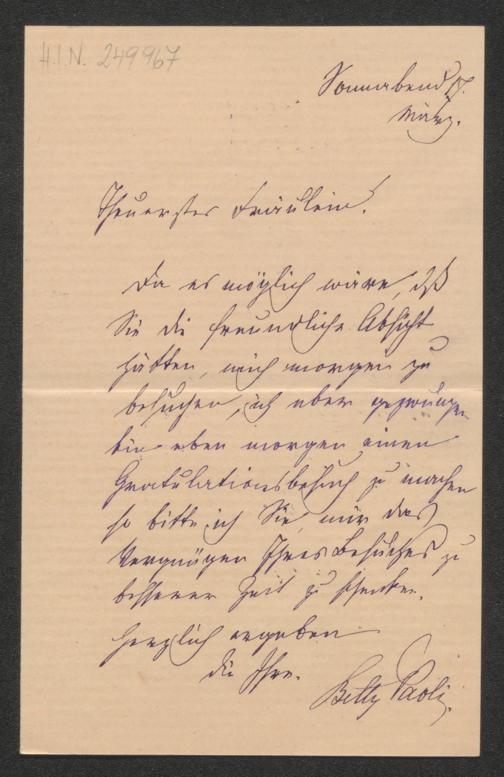 H.I.N. 249967
Sonnabend, 17.
März.
Theuerstes Fräulein!
Da es möglich wäre, dß
Sie die freundliche Absicht
hätten, mich morgen zu
besuchen, ich aber gezwungen
bin eben morgen einen
Gratulationsbesuch zu machen
so bitte ich Sie, mir das
Vergnügen Ihres Besuches zu
besserer Zeit zu schenken.
Herzlich ergeben
die Ihre.
Betty Paoli.